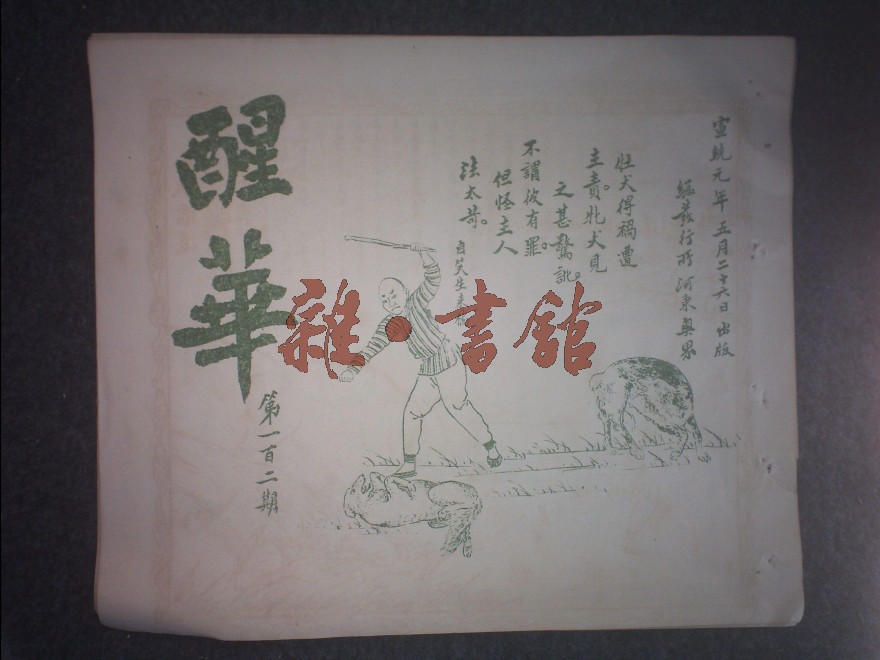 宣統元年五月二十六日出版
經發行所河東奧界
牡犬得禍遭
主責。牝犬見
之甚驚訛。
不謂彼有罪。
但怪主人
法太苛。
自笑生
醒華
第一百二期
雜·書館